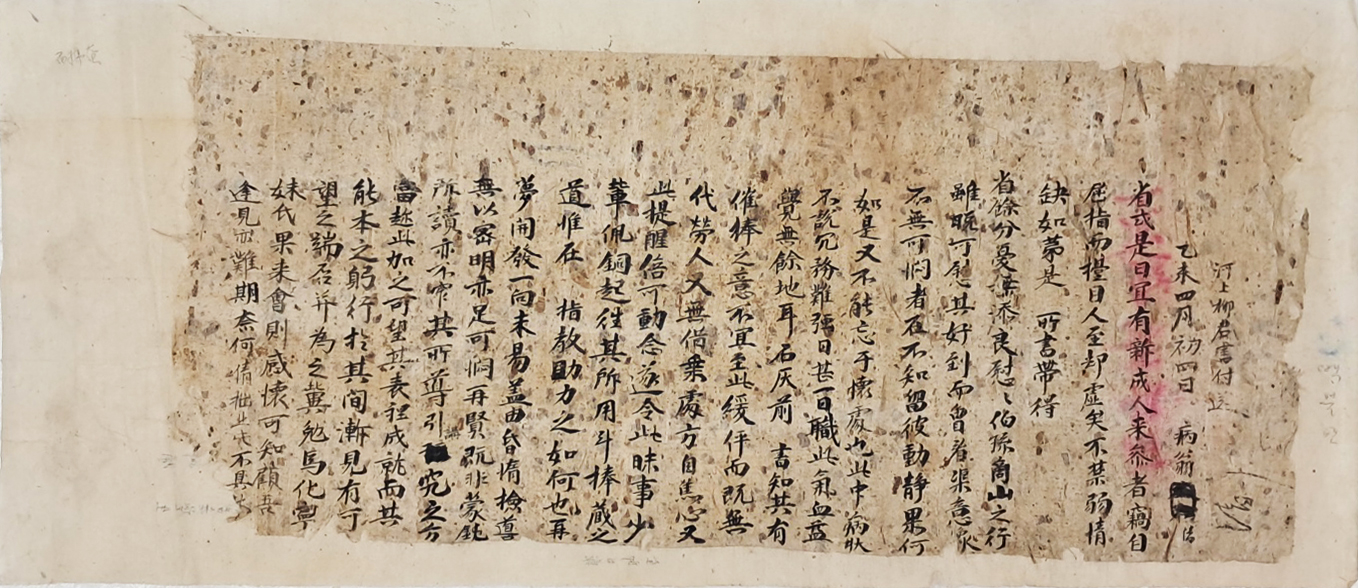 河上柳君書付送
乙未四月初四日 病翁
省式是日宜有新成人來參者竊自
屈指而擡目人至却虛矣不禁弱情
缺如第是 所書帶得
省餘分憂深添良慰〻伯孫商山之行
雖晩可慰其好到而曾看渠意象
不無可悶者在不知留彼動靜果何
如是又不能忘于懷處也此中病狀
不說冗務難强日甚一日職此氣血益
覺無餘地耳 石灰前 書知其有
催捧之意不宜至此緩伻而旣無
代勞人又無借乗處方自焦心又
此提醒倍可動念遂令此昧事少
輩佩銅起往其所用斗捧藏之
道惟在 指敎助力之如何也再
夢開發一向未易益曲昏惰檢尊
無以密明亦足可悶再賢旣非蒙鈍
所讀亦不窄其所導引 究之方
當趂此加之可望其表裡成就而其
能本之躬行於其間漸見有可
望之端否并爲之冀勉焉化寧
妹氏果來會則感懷可知顧吾
逢見亦難期奈何 倩 此 不具